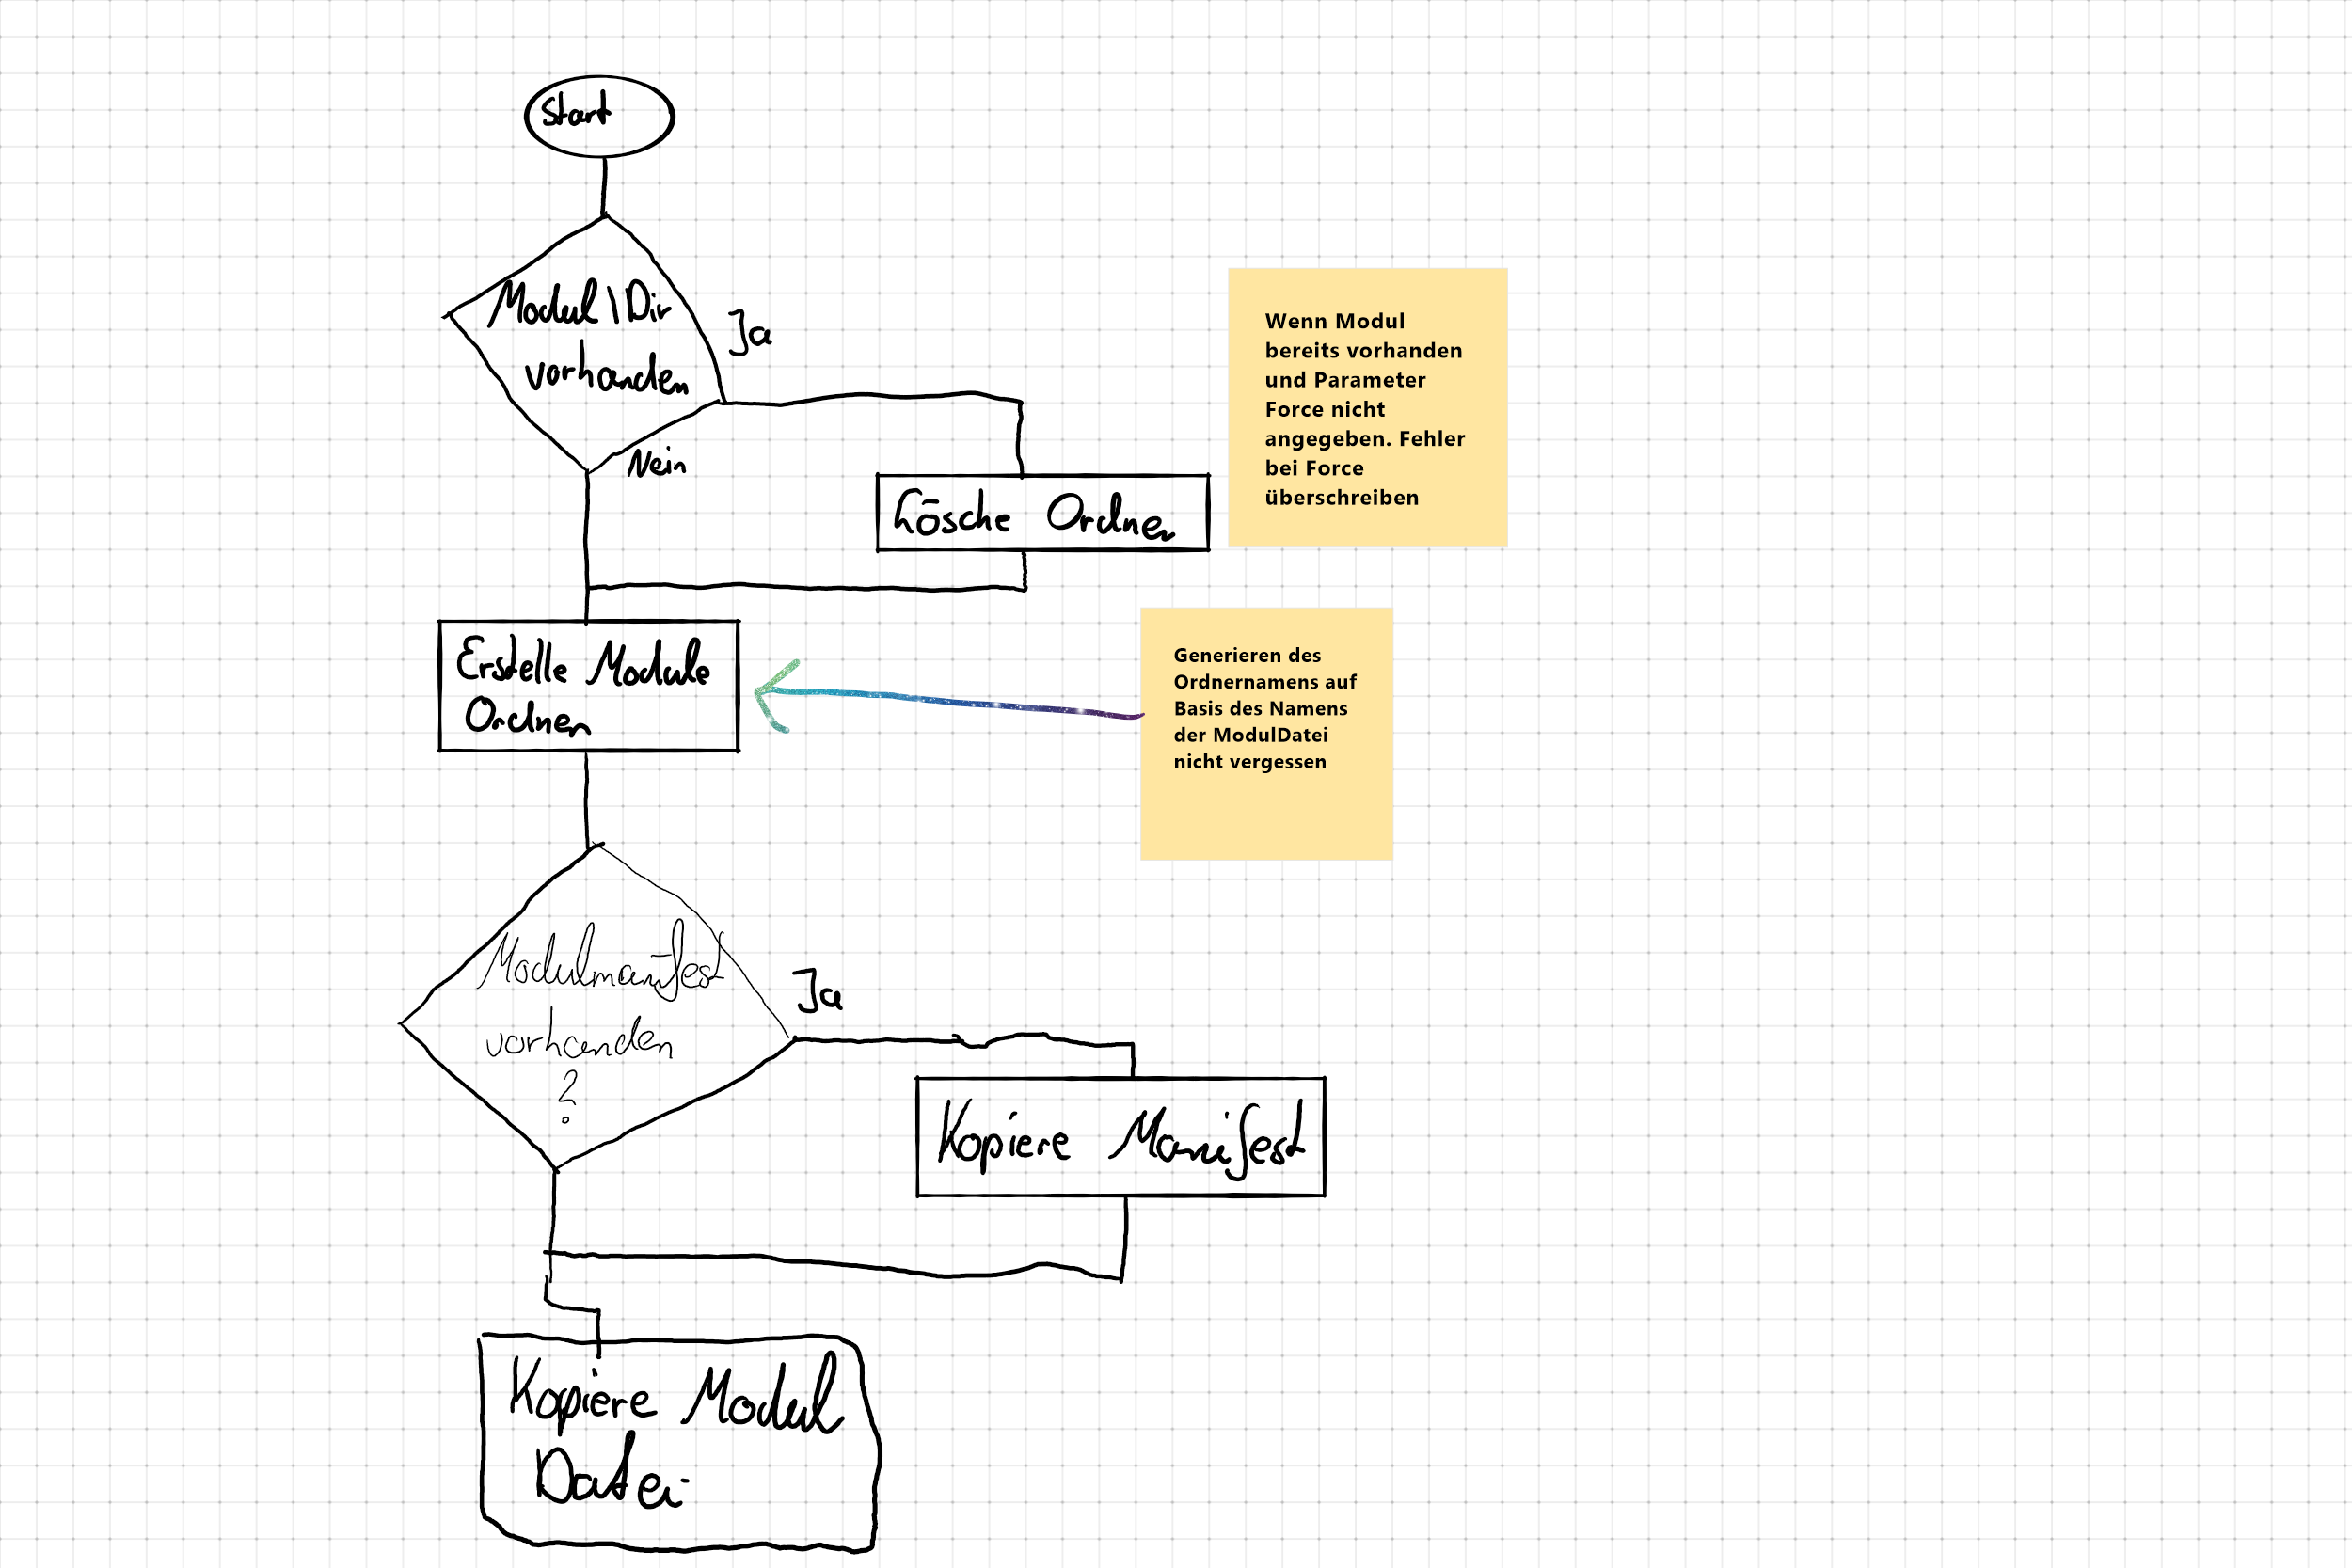 Start
Modul\Dir
vorhanden
Ja
Nein
Lösche Ordner
Wenn Modul
bereits vorhanden
und Parameter
Force nicht
angegeben. Fehler
bei Force
überschreiben
Erstelle Module
Ordner
Generieren des
Ordnernamens auf
Basis des Namens
der ModulDatei
nicht vergessen
Modulmanifest
vorhanden
?
Ja
Kopiere Manifest
Kopiere Modul
Datei